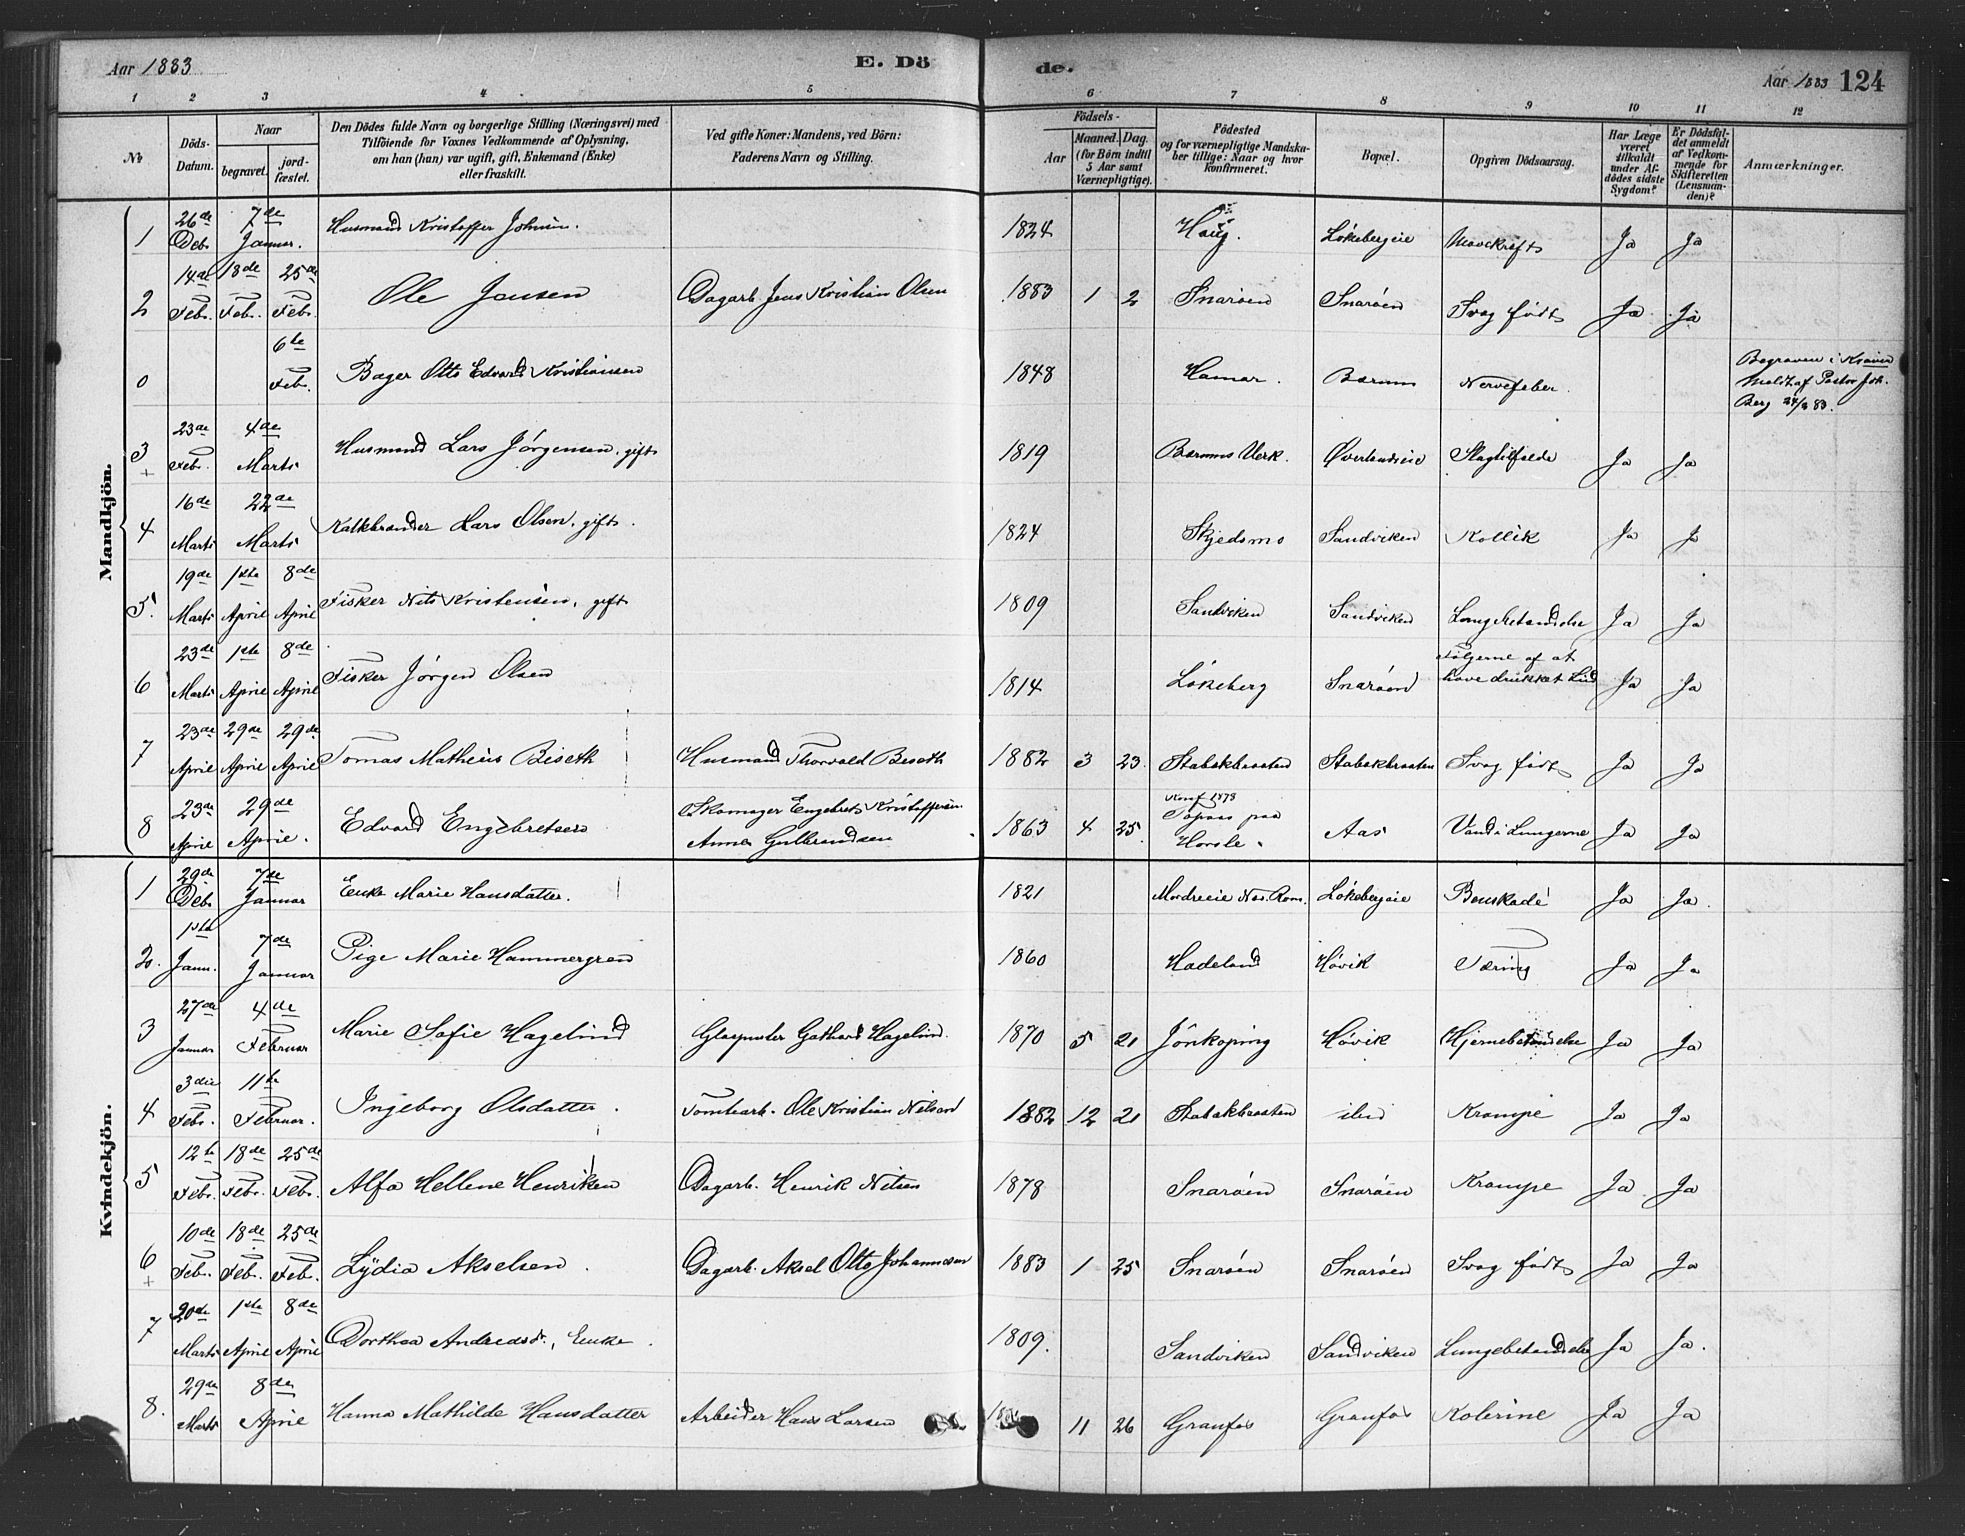 Aar 1883 E. Döde. Aar 1883 124
1 2 3 4 5 6 7 8 9 10 11 12
№ Döds-Datum. Naar begravet. jordfæstet. Den Dödes fulde Navn og borgerlige Stilling (Næringsvei) med Tilföiende for Voxnes Vedkommende af Oplysning, om han (hun) var ugift, gift, Enkemand (Enke) eller fraskilt. Ved gifte Koner: Mandens, ved Börn: Faderens Navn og Stilling. Födsels- Aar Maaned. Dag. (for Börn indtil 5 Aar samt Værnepligtige). Födested og for værnepligtige Mandskaber tillige: Naar og hvor konfirmeret. Bopæl. Opgiven Dödsaarsag. Har Læge været tilkaldt under Afdödes sidste Sygdom? Er Dödsfaldet anmeldt af Vedkommende for Skifteretten (Lensmanden)? Anmærkninger.
Mandkjön.
1 26de Debr 7de Januar. Husmand Kristoffer Johnsen. 1824 Haug. Løkebergeie Mavekræft Ja Ja
2 14de Febr. 18de Febr. 25de Febr. Ole Jensen Dagarb. Jens Kristian Olsen 1883 1 2 Snarøen Snarøen Svag født Ja Ja
0 6te Feb. Bager Otto Edvard Kristiansen 1848 Hamar. Bærum Nervefeber. Begraven i Meldt af Pastor Joh. Berg 83.
3 + 23de Febr. 4de Marts Husmand Lars Jørgensen, gift 1819 Bærums Verk. Øverlandseie Slagtilfælde Ja Ja
4 16de Marts 22de Marts Kalkbrænder Lars Olsen, gift. 1824 Skjedsmo Sandviken Kollik Ja Ja
5. 19de Marts 1ste April 8de April Fisker Nils Kristensen, gift 1809 Sandviken Sandviken Lungebetændelse Ja Ja
6 23de Marts 1ste April 8de April Fisker Jørgen Olsen 1814 Løkeberg Snarøen Følgerne af at have drukket Lud Ja Ja
7 23de April 29de April 29de April Tomas Matheus Biseth Husmand Thorvald Biseth 1882 3 23. Stabækbraaten Stabækbraaten Svag født Ja Ja
8 23de April 29de April. Edvard Engebretsen Skomager Engebret Kristoffersen Anne Gulbrandsen 1863 4 25 Konf 1878 Topaas paa Horsle. Aas Vand i Lungerne Ja Ja
Kvindekjön.
1 29de Debr 7de Januar Enke Marie Hansdatter. 1821 Mordreeie Nes. Rom. Løkebergeie Benskade Ja Ja.
2. 1ste Janu. 7de Januar Pige Marie Hammergren 1860 Hadeland Høvik Tæring Ja Ja
3 27de Januar 4de Februar Marie Sofie Hagelind Glaspuster Gothard Hagelind. 1870 5 21 Jönkoping Høvik Hjernebetændelse Ja Ja
4 3die Febr. 11te Februar. Ingeborg Olsdatter. Tomtearb. Ole Kristian Nilsen 1882 12 21 Stabækbraaten ibid Krampe Ja Ja
5 12te Febr. 18de Febr. 25de Febr. Alfa Hellene Henriken Dagarb. Henrik Nilsen 1878 Snarøen Snarøen Krampe Ja Ja
6 + 10de Febr. 18de Febr. 25de Febr. Lydia Akselsen. Dagarb. Aksel Otto Johannesen 1883 1 25 Snarøen Snarøen Svag født Ja Ja
7 20de Marts 1ste April 8de April Dorthea Andreasd., Enke. 1809. Sandviken Sandviken Lungebetændelse Ja Ja.
8. 29de Marts 8de April Hanna Mathilde Hansdatter Arbeider Hans Larsen 11 26 Granfos Granfos Kolerine Ja Ja